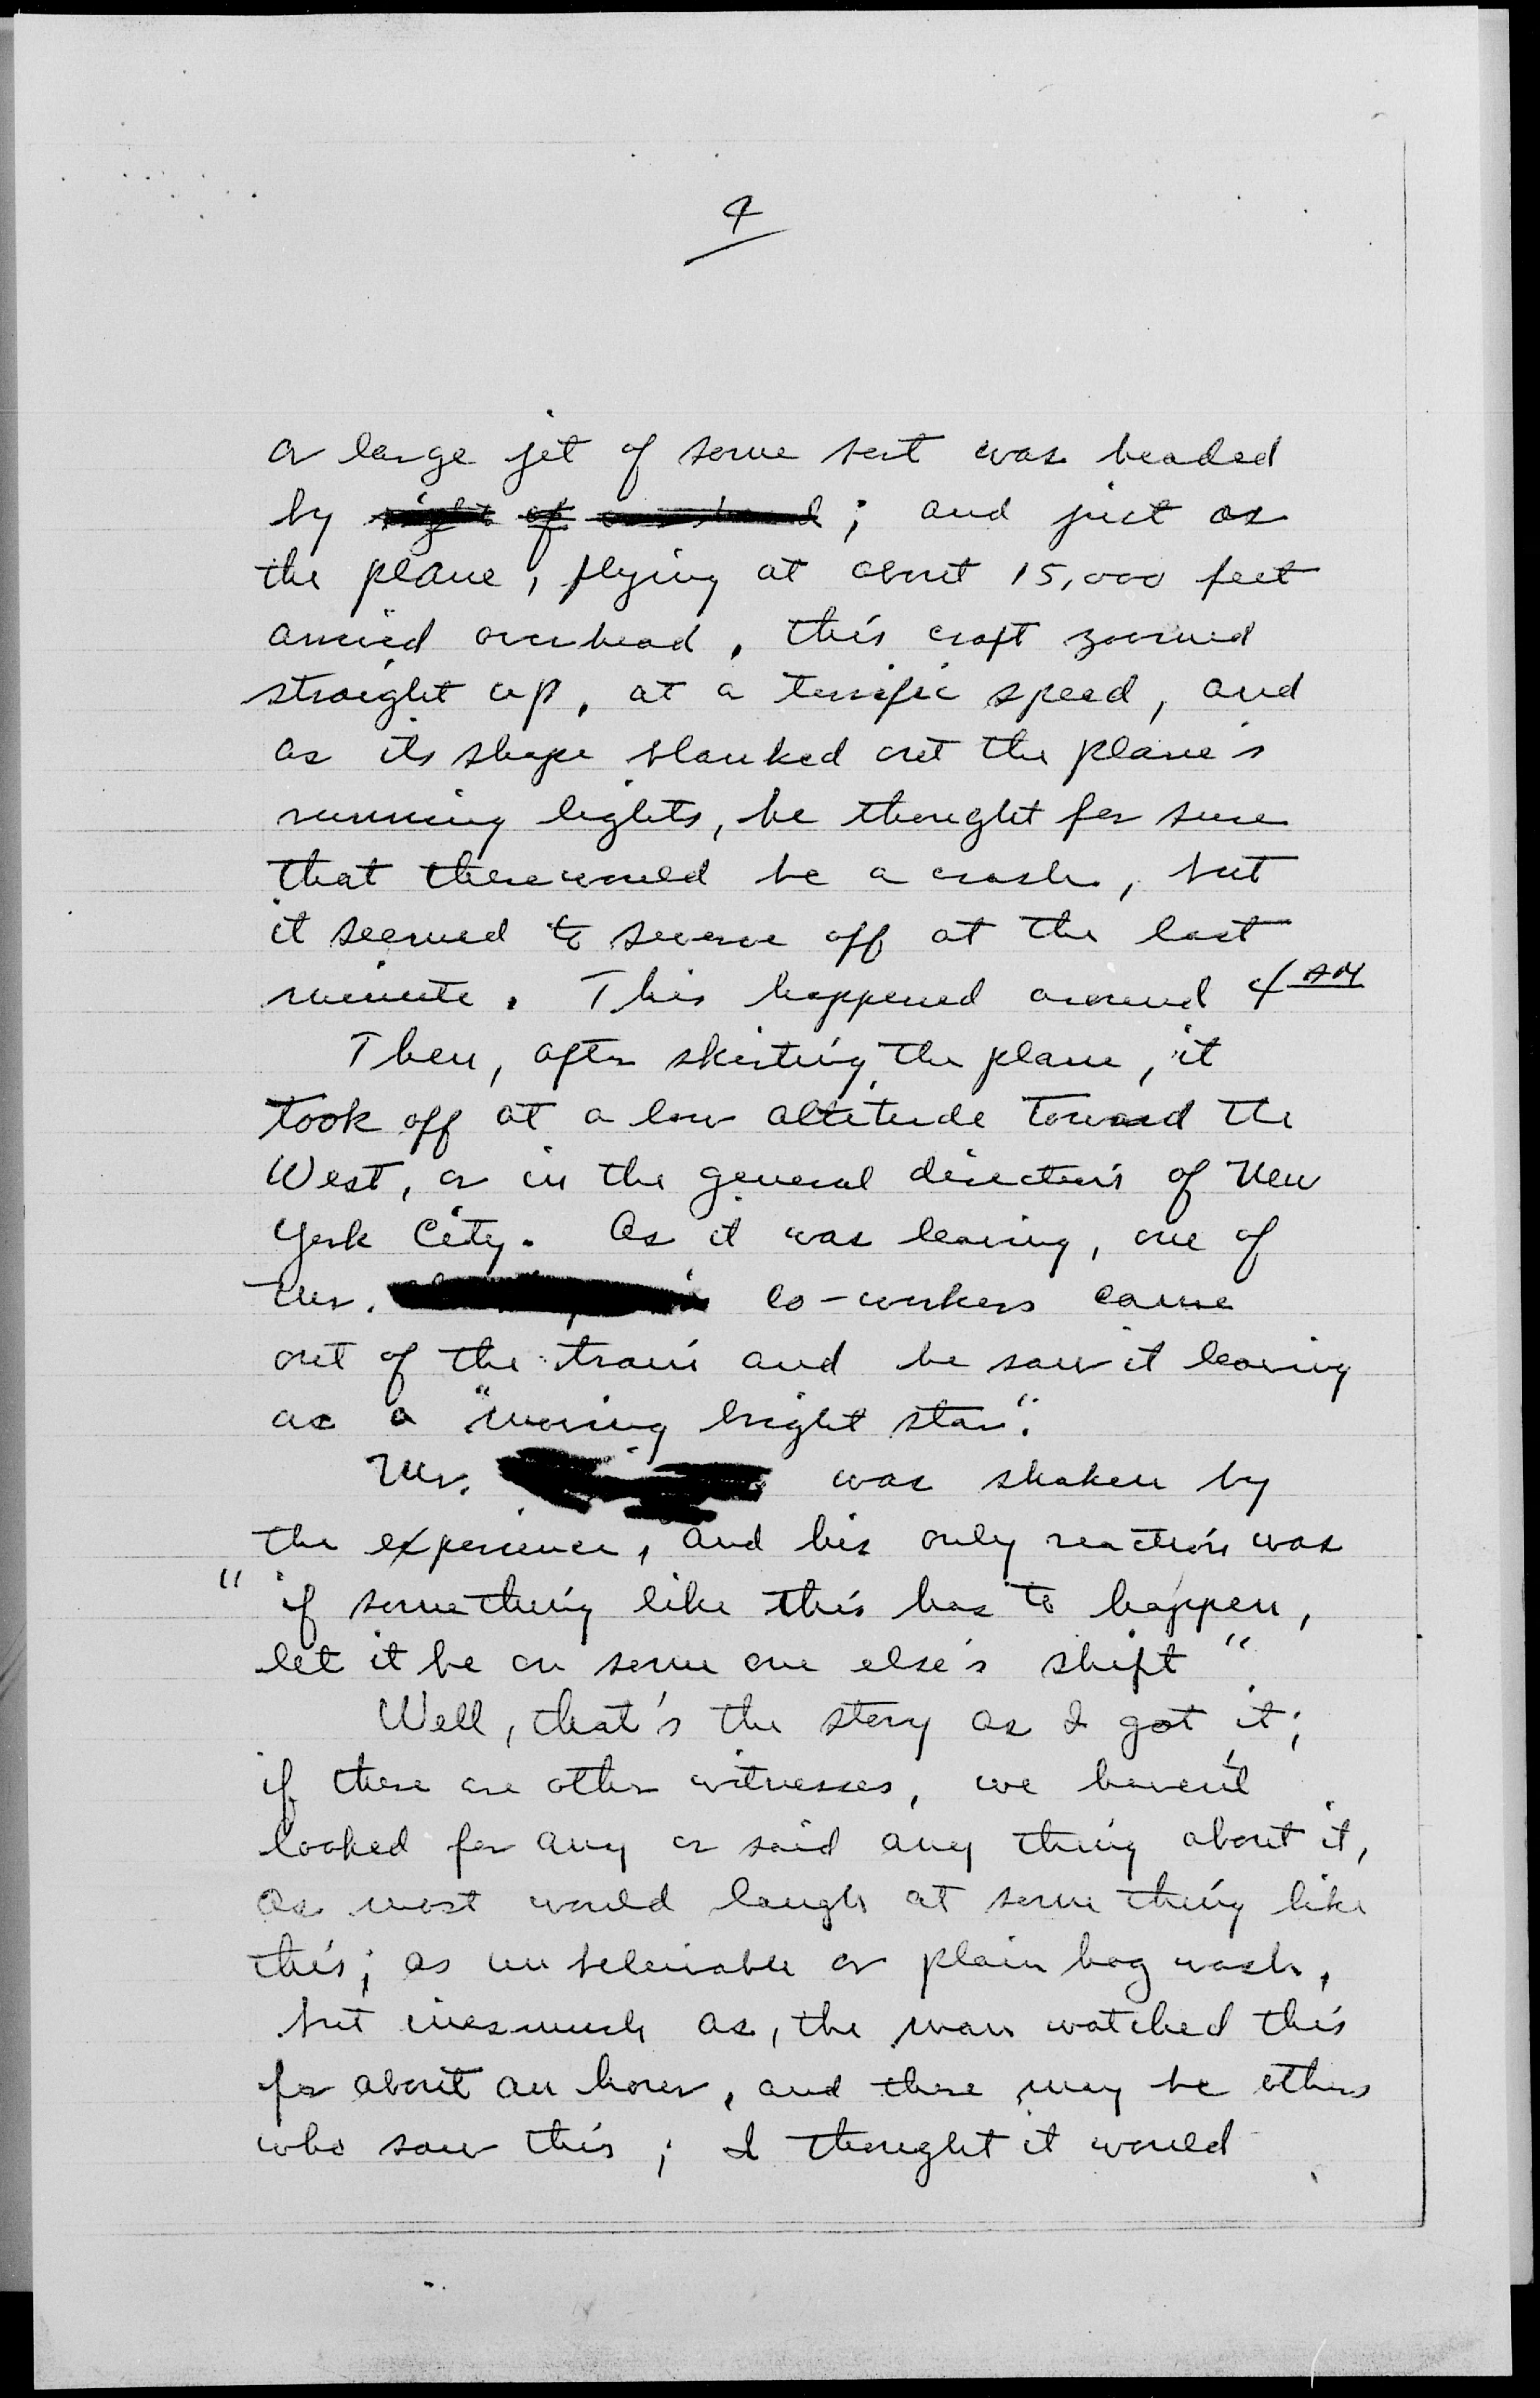 4
a large jet of some sort was headed
by right of ; and just as
the plane, flying at about 15,000 feet
arrived overhead, this craft zoomed
straight up, at a terrific speed, and
as its shape blanked out the plane's
running lights, he thought for sure
that there would be a crash, but
it seemed to swerve off at the last
minute. This happened around 4 AM
Then, after skirting the plane, it
took off at a low altitude toward the
West, or in the general direction of New
York City. As it was leaving, one of
Mr. co-workers came
out of the train and he saw it leaving
as a "moving bright star".
Mr. was shaken by
the experience, and his only reaction was
"if something like this has to happen,
let it be on some one else's shift"
Well, that's the story as I got it;
if there are other witnesses, we haven't
looked for any or said any thing about it,
as most would laugh at some thing like
this; as unbeleivable or plain hog wash,
but inasmuch as, the man watched this
for about an hour, and there may be others
who saw this; I thought it would